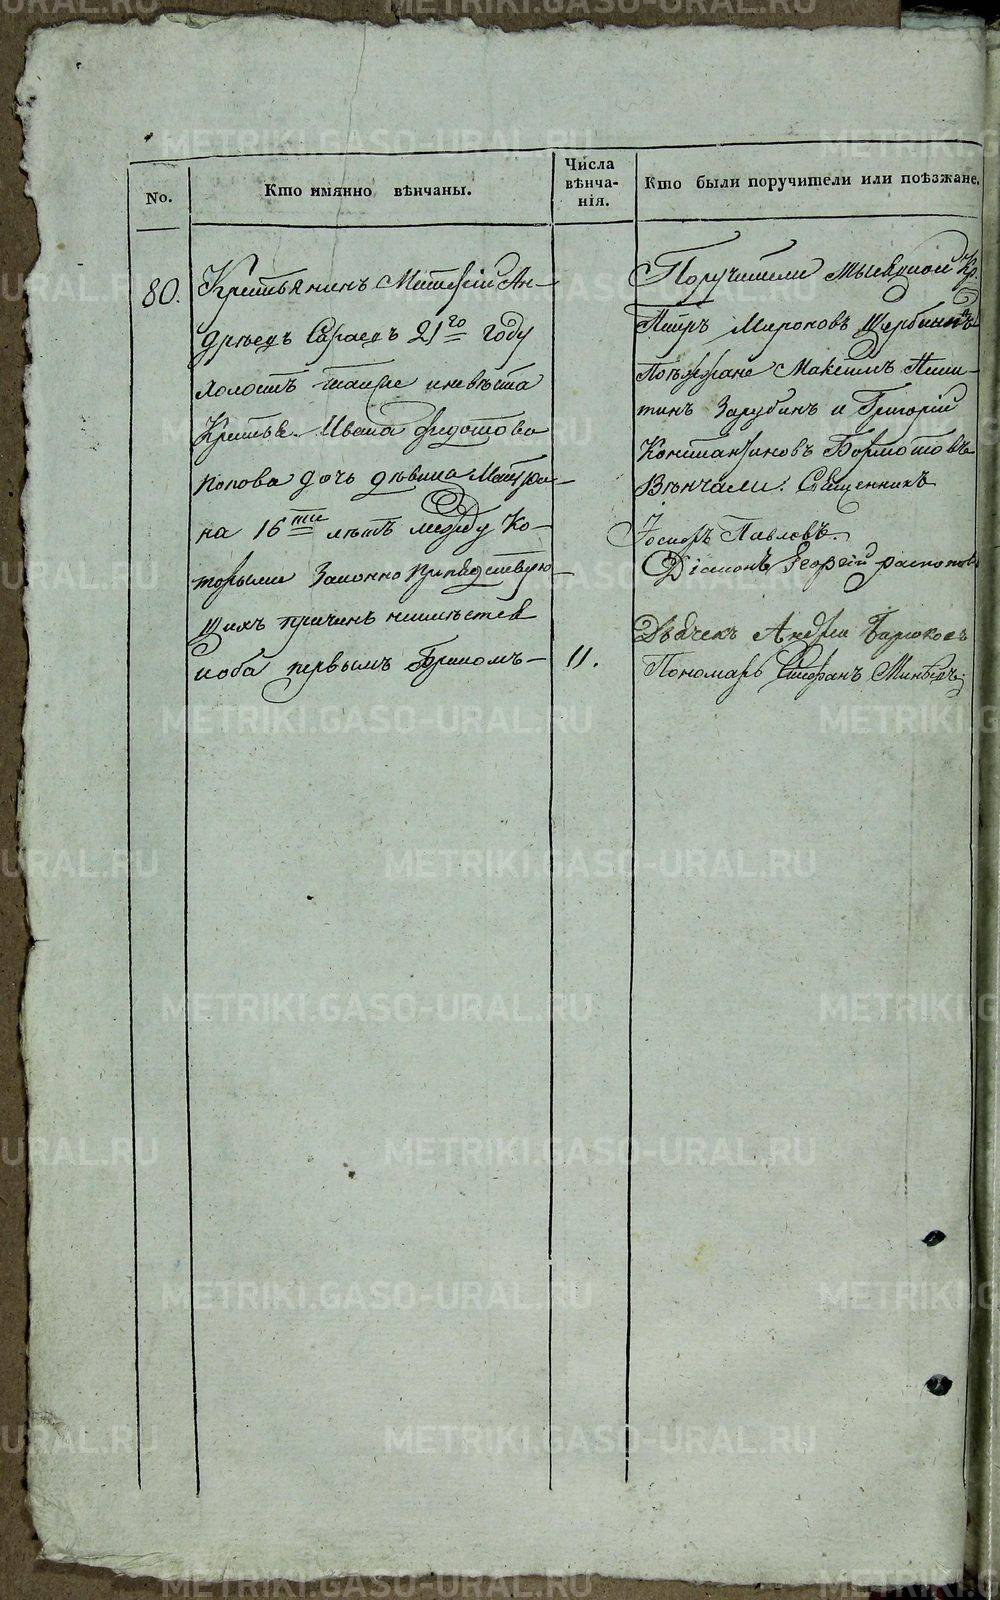 No.
Кто имянно вѣнчаны.
Числа
вѣнча-
нія.
Кто были поручители или поѣзжане.
80.
Крестьянинъ Ан-
дрѣевъ 21го году
холостъ невѣста
Крестья. Ивана Федотова
Попова дочь дѣвица Матре-
на 16ти лѣтъ между ко-
торыми законно препядствую-
щихъ причинъ неимѣется
иоба первымъ бракомъ-
11.
Поручители Кр.
Петръ Мироновъ
Поѣзжане Максимъ Ники-
тинъ Зарубинъ и Григорій
Константиновъ
Вѣнчали: Священникъ
Іосифъ Павловъ.
Діаконъ Георгій
Дьячекъ Андрей
Пономарь Стефанъ
METRIKI.GASO-URAL.RU